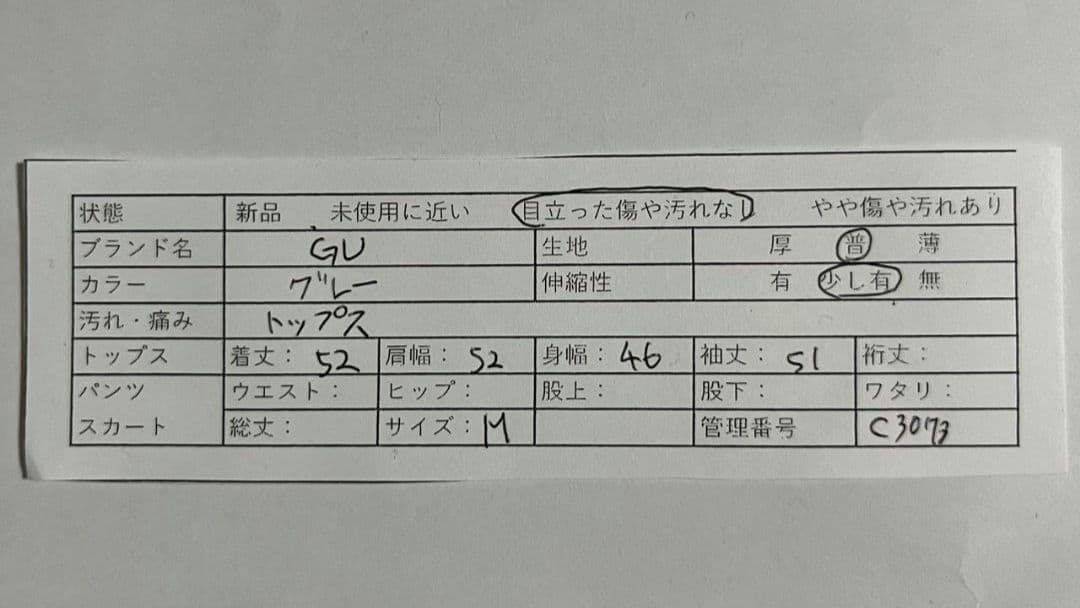 状態 新品 未使用に近い 目立った傷や汚れなし やや傷や汚れあり
ブランド名 GU 生地 厚 普 薄
カラー グレー 伸縮性 有 少し有 無
汚れ・痛み トップス
トップス 着丈: 52 肩幅: 52 身幅: 46 袖丈: 51 裄丈:
パンツ ウエスト: ヒップ: 股上: 股下: ワタリ:
スカート 総丈: サイズ: M 管理番号 C3073